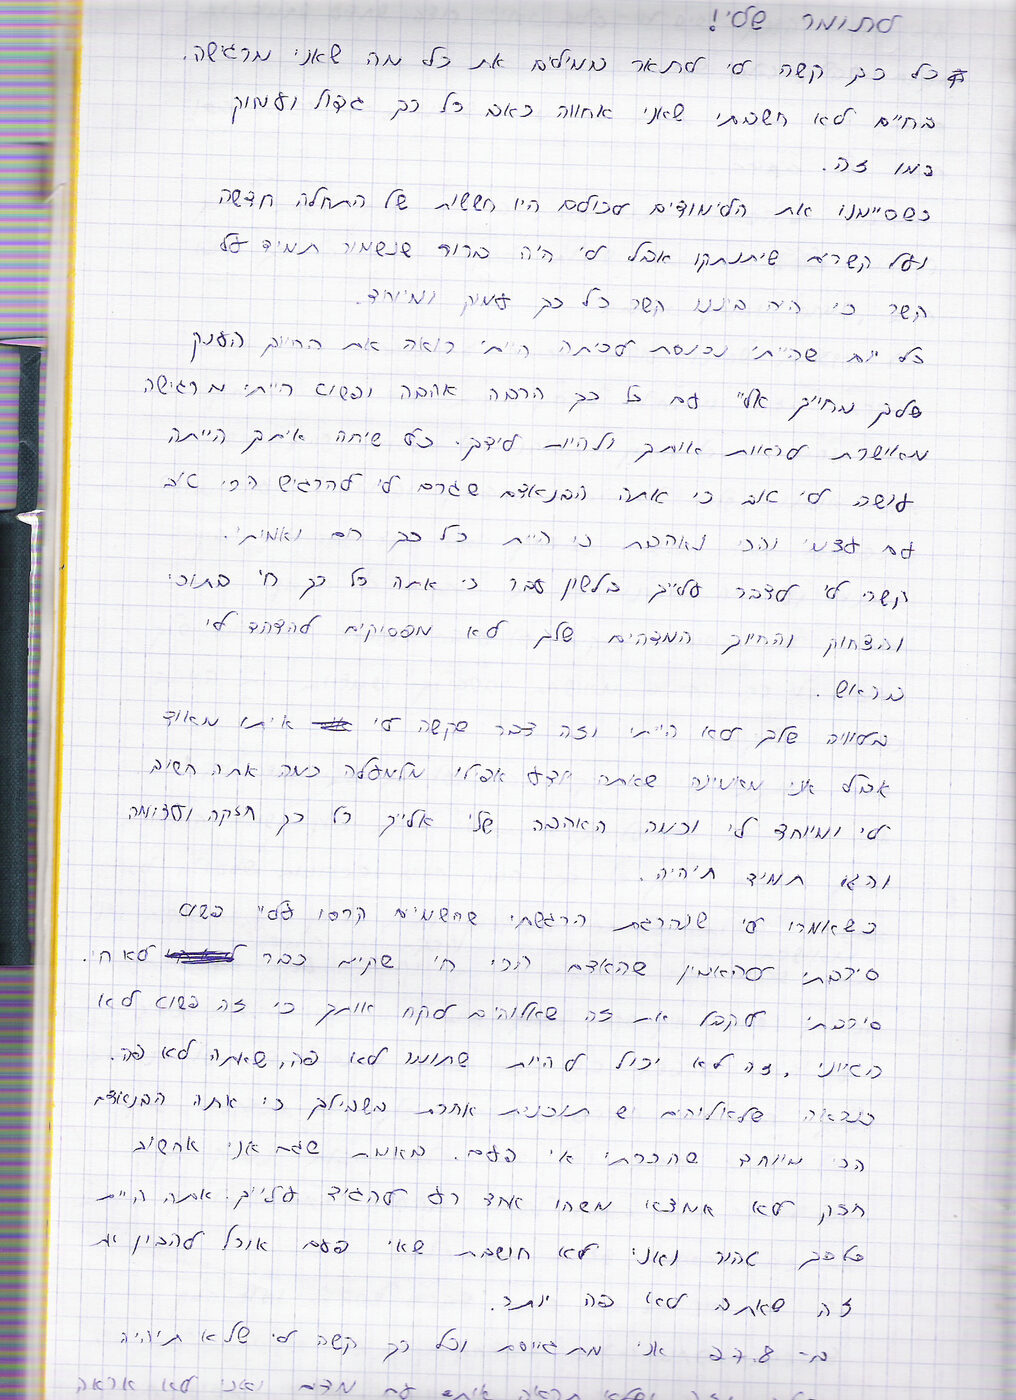 לתומר שלי!
כל כך קשה לי לתאר במילים את כל מה שאני מרגישה.
בחיים לא חשבתי שאני אחווה כאב כל כך גדול ועמוק
כמו זה.
כשסיימנו את הלימודים לכולם היו חששות של התחלה חדשה
ועל קשרים שיתנתקו אבל לי היה ברור שנשמור תמיד על
קשר כי היה ביננו קשר כל כך עמוק ומיוחד.
כל יום שהייתי נכנסת לכיתה הייתי רואה את החיוך הענק
שלך מחייך אליי עם כל כך הרבה אהבה ופשוט הייתי מרגישה
מאושרת לראות אותך ולהיות לידך. כל שיחה איתך הייתה
עושה לי טוב כי אתה הבנאדם שגרם לי להרגיש הכי טוב
עם עצמי והכי נאהבת כי היית כל כך חם ואמיתי.
קשה לי לדבר עלייך בלשון עבר כי אתה כל כך חי בתוכי
והצחוק והחיוך המדהים שלך לא מפסיקים להדהד לי
בראש.
בלוויה שלך לא הייתי וזה דבר שקשה לי איתו מאוד
אבל אני מאמינה שאתה יודע אפילו מלמעלה כמה אתה חשוב
לי ומיוחד לי וכמה האהבה שלי אליך כל כך חזקה ועצומה
והיא תמיד תיהיה.
כשאמרו לי שנהרגת הרגשתי שהשמים קרסו עליי פשוט
סירבתי להאמין שהאדם הכי חי שקיים כבר לא חי.
סירבתי לקבל את זה שאלוהים לקח אותך כי זה פשוט לא
הגיוני, זה לא יכול להיות שתומר לא פה, שאתה לא פה.
כנראה שלאלוהים יש תוכנית אחרת בשבילך כי אתה הבנאדם
הכי מיוחד שהכרתי אי פעם. באמת שגם אני אחשוב
חזק לא אמצא משהו אחד רע להגיד עלייך. אתה היית
כל כך טהור ואני לא חושבת שאי פעם אוכל להבין את
זה שאתה לא פה יותר.
ב- 27.8 אני מתגייסת וכל כך קשה לי שלא תיהיה
איתי עם מדים ואני לא אראה